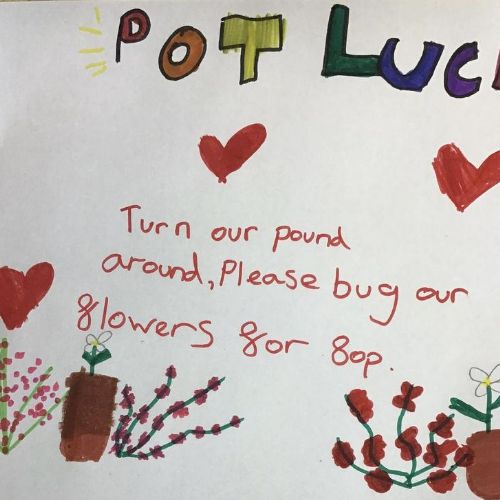 POT LUC
Turn our pound
around, Please bug our
flowers for 80p.